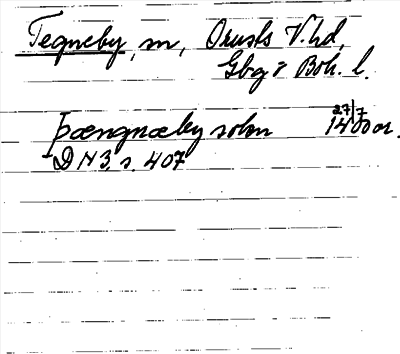 Tegneby, sn, Orusts V. hd,
Gbg o Boh. l.
þængnæby sokn 27/7 1400 or.
DN 3, s. 407